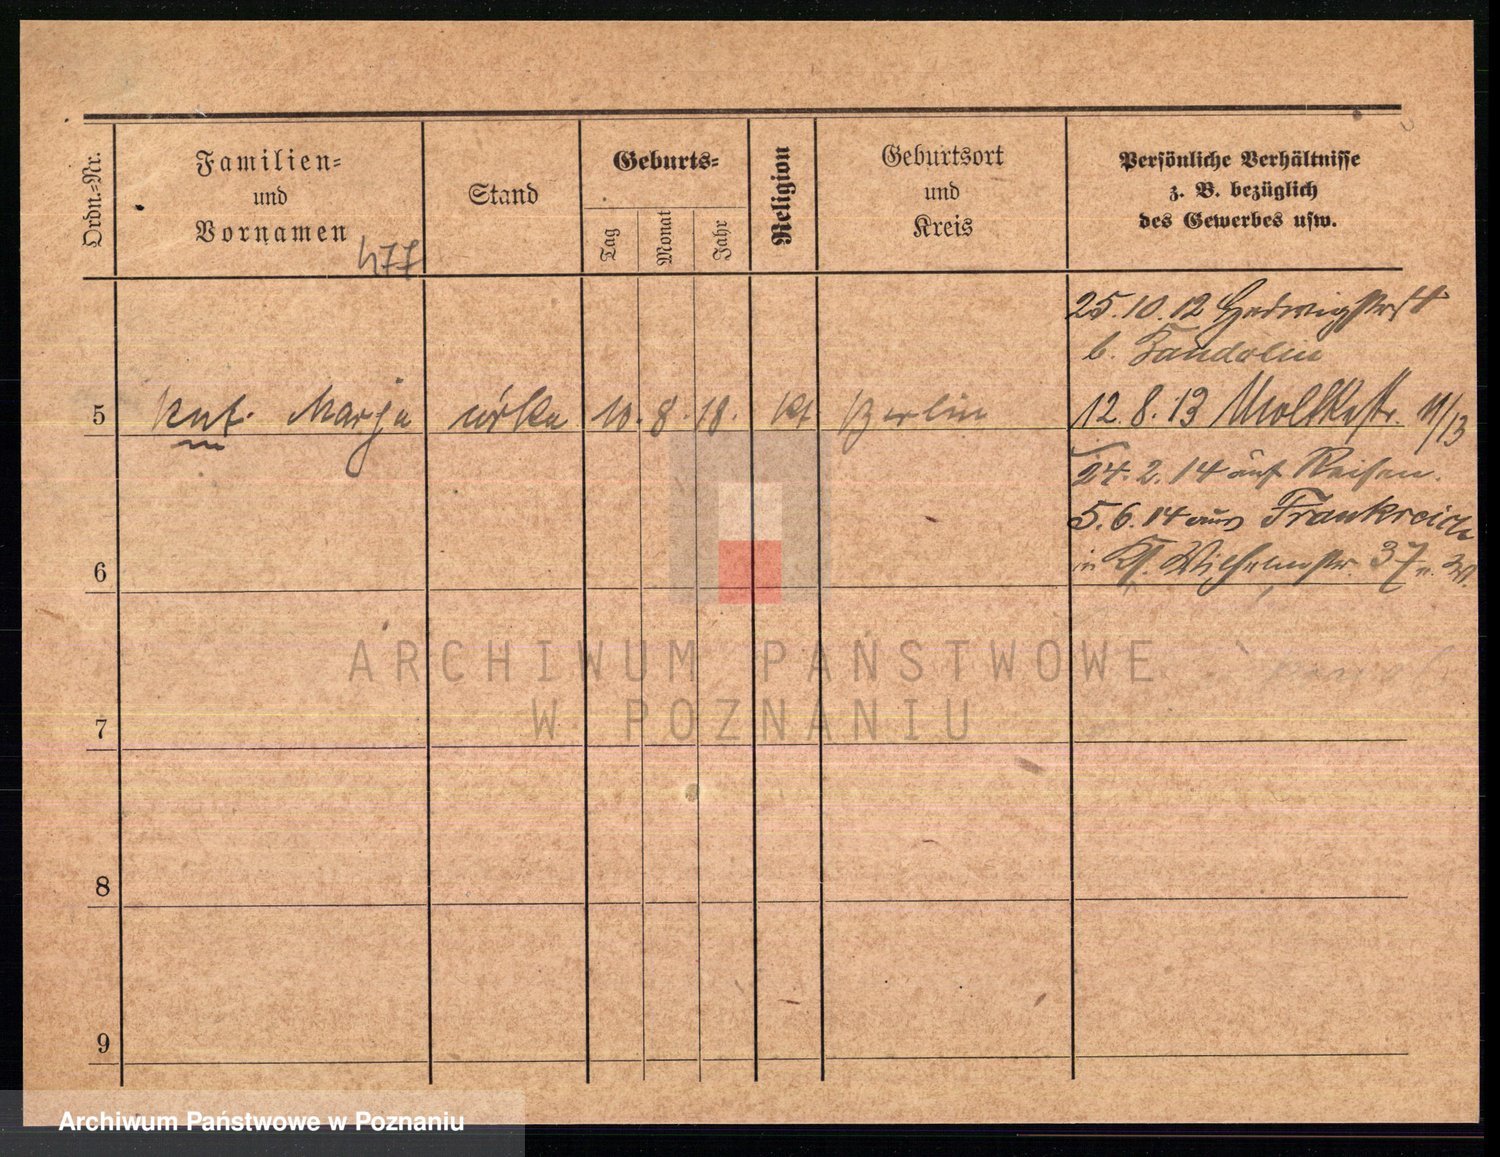 Ordn.=Nr.
Familien=
und
Vornamen
477
Stand
Geburts=
Tag
Monat
Jahr
Religion
Geburtsort
und
Kreis
Persönliche Verhältnisse
z. B. bezüglich
des Gewerbes usw.
25.10.12 Hedwigstr
b.
5 Marja córka 10. 8. 18. kt Berlin
12. 8. 13 Moltkestr. 11/13
24. 2. 14 auf Reisen.
5. 6. 14 aus Frankreich
6
in Wilhelmstr. 37
7
8
9
ARCHIWUM PAŃSTWOWE
W POZNANIU
Archiwum Państwowe w Poznaniu